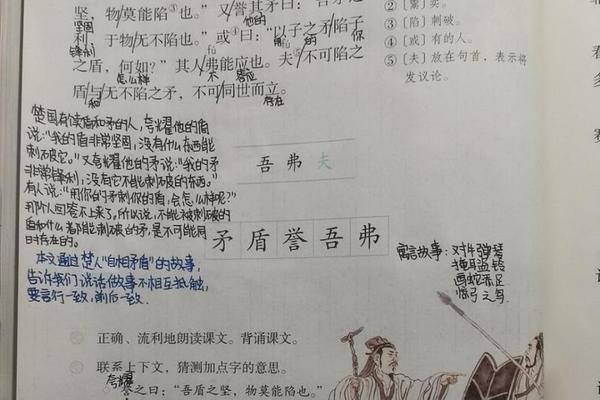 坚，物莫能陷③也。”又誉其矛曰：
坚固
他的
利，于物无不陷也。”或④曰：“以子之矛陷子
锋利
用
的
你
fú
之盾，何如？”其人弗能应也。夫⑤不可陷之
怎么样
不
答应
盾与无不陷之矛，不可同世而立。
和
存在
②〔鬻〕卖。
③〔陷〕刺破。
④〔或〕有的人。
⑤〔夫〕放在句首，表示将
发议论。
楚国有卖盾和矛的人，夸耀他的盾
说：“我的盾非常坚固，没有什么东西能
刺破它。”又夸耀他的矛说：“我的矛
非常锋利，没有它不能刺破的东西。”
有人说：“用你的矛刺你的盾，会怎么样呢？”
那个人回答不上来了。所以说，不能被刺破的
盾和什么都能刺破的矛，是不可能同
时存在的。
本文通过楚人“自相矛盾”的故事，
告诉我们说话做事不相互抵触，
要言行一致，前后一致．
吾 弗 夫
矛 盾 誉 吾 弗
寓言故事：对牛弹琴
掩耳盗铃
画蛇添足
惊弓之鸟
正确、流利地朗读课文。背诵课文。
联系上下文，猜测加点字的意思。
夸耀
誉之曰：“吾盾之坚，物莫能陷也。”